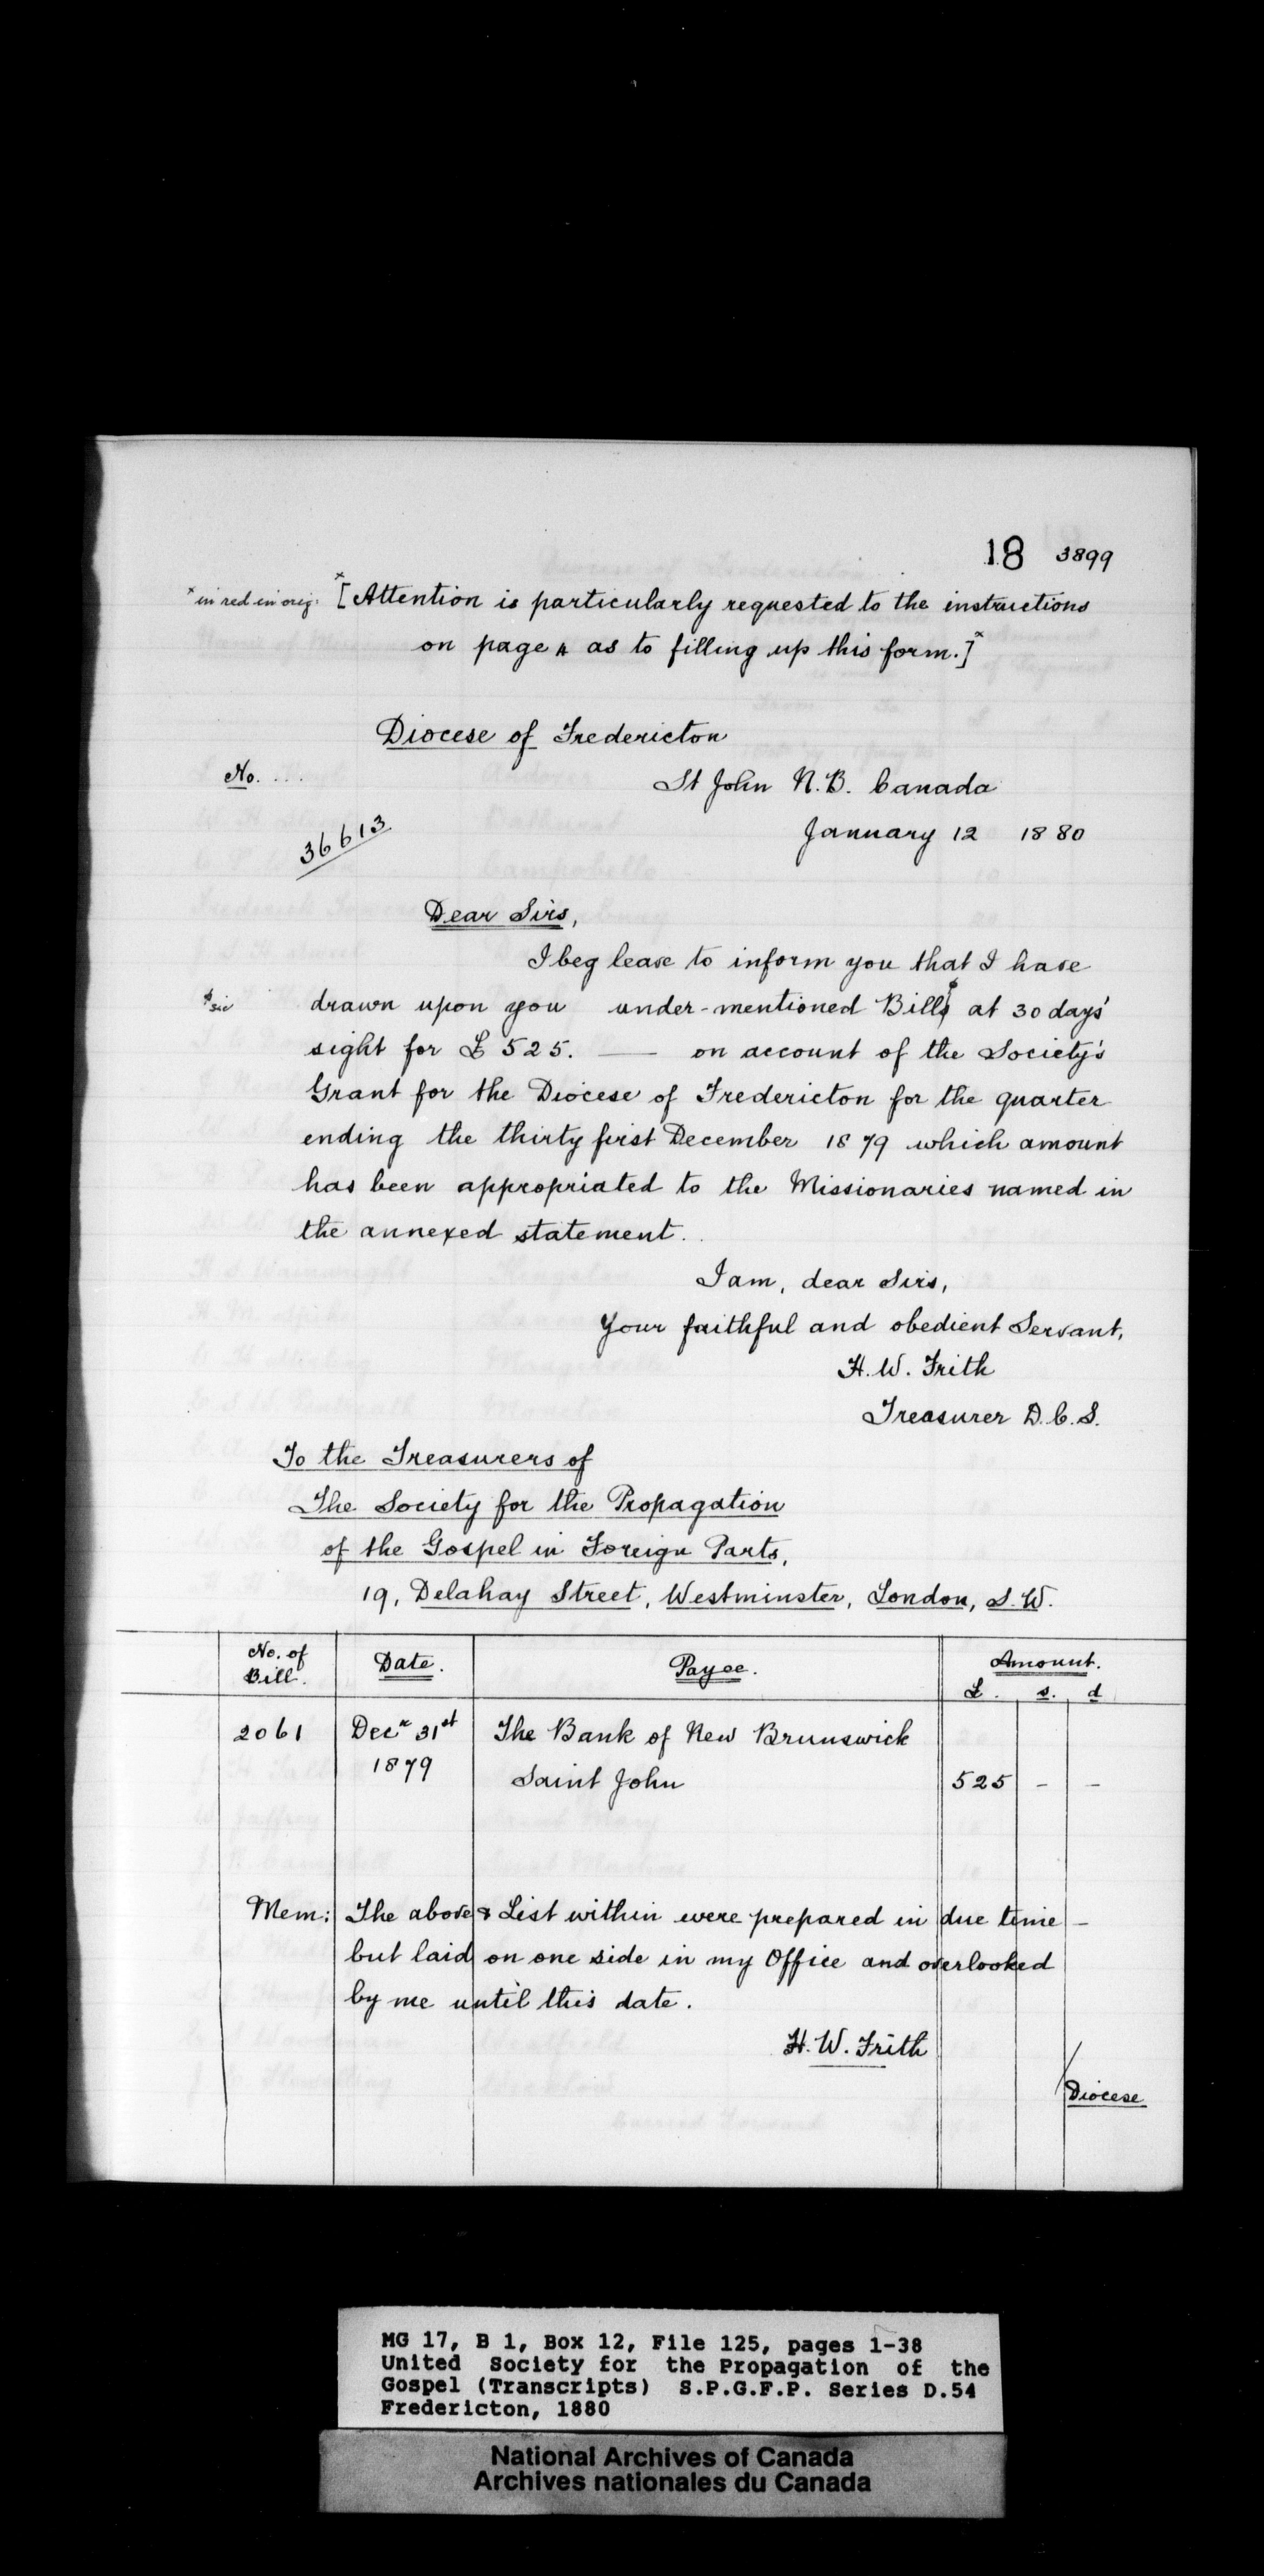 18 3899
* in red in orig: *[Attention is particularly requested to the instructions
on page 4 as to filling up this form.]*
Diocese of Fredericton
No. ...
St John N.B. Canada
36613
January 12 1880
Dear Sirs,
I beg leave to inform you that I have
sic drawn upon you under-mentioned Bills at 30 days'
sight for £ 525. — on account of the Society's
Grant for the Diocese of Fredericton for the quarter
ending the thirty first December 1879 which amount
has been appropriated to the Missionaries named in
the annexed statement.
I am, dear Sirs,
Your faithful and obedient Servant,
H. W. Frith
Treasurer D. C. S.
To the Treasurers of
The Society for the Propagation
of the Gospel in Foreign Parts,
19, Delahay Street, Westminster, London, S. W.
No. of Bill. Date. Payee. Amount.
£. s. d
2061 Decr 31st The Bank of New Brunswick
1879 Saint John 525 - -
Mem: The above & List within were prepared in due time -
but laid on one side in my Office and overlooked
by me until this date.
H. W. Frith
/Diocese
MG 17, B 1, Box 12, File 125, pages 1-38
United Society for the Propagation of the
Gospel (Transcripts) S.P.G.F.P. Series D.54
Fredericton, 1880
National Archives of Canada
Archives nationales du Canada